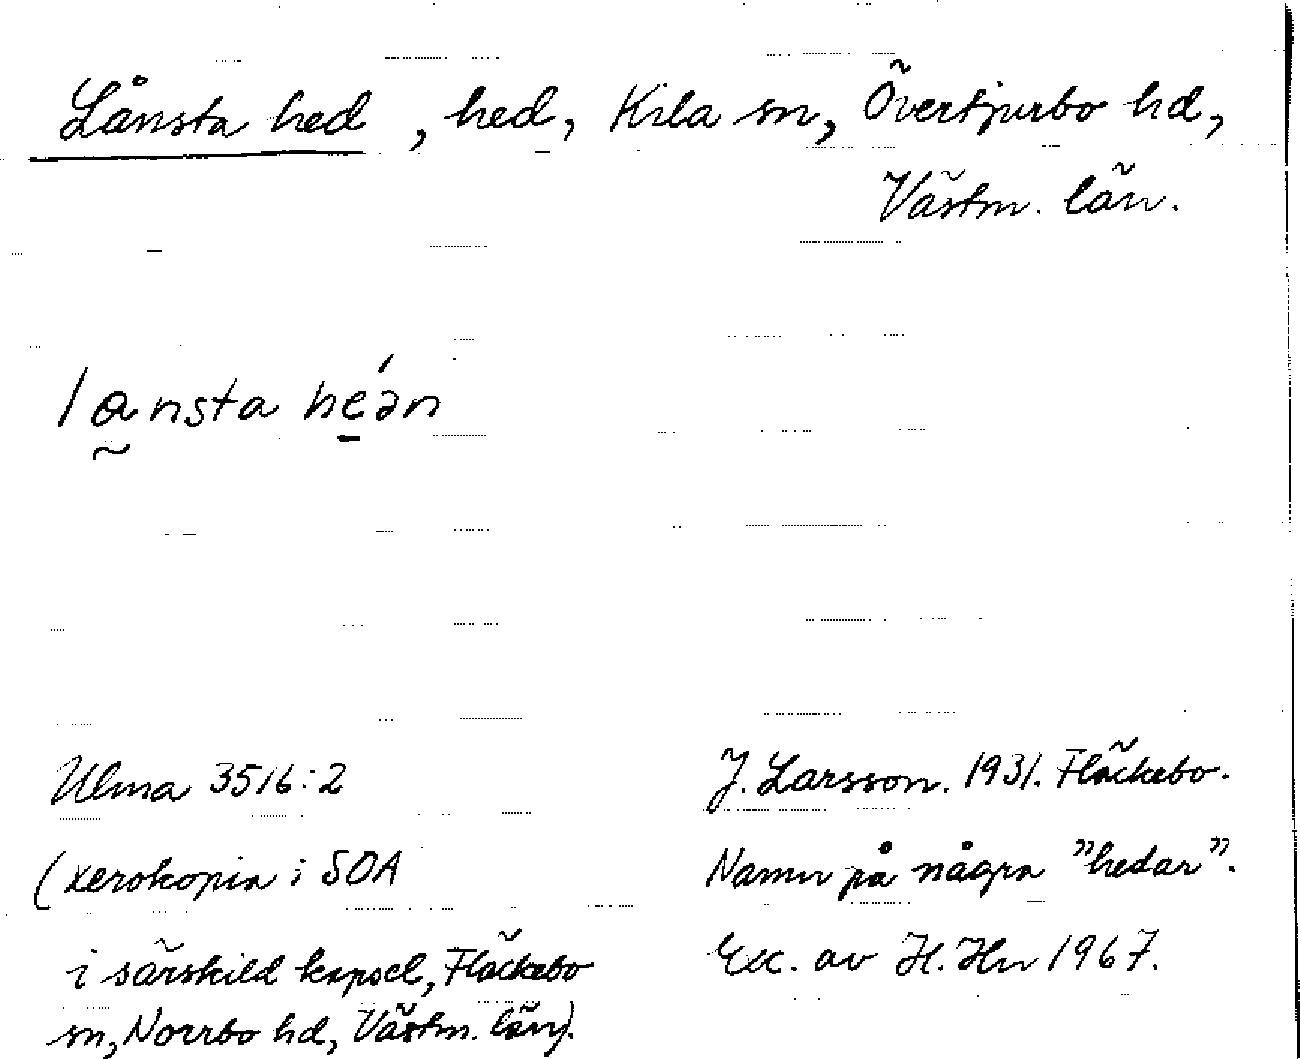 Lånsta hed, hed, Kila sn, Övertjurbo hd,
Västm. län.
lansta héən
Ulma 3516:2
(xerokopia i SOA
i särskild kapsel, Fläckebo
sn, Norrbo hd, Västm. län).
J. Larsson. 1931. Fläckebo.
Namn på några "hedar".
Exc. av H. Hn 1967.